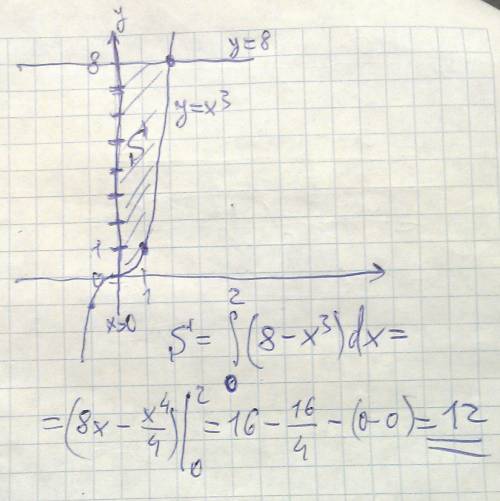 y
8
y=8
y=x³
S
1
0
1
x=0
S = ∫₀² (8 - x³) dx =
= (8x - x⁴/4) |₀² = 16 - 16/4 - (0-0) = 12